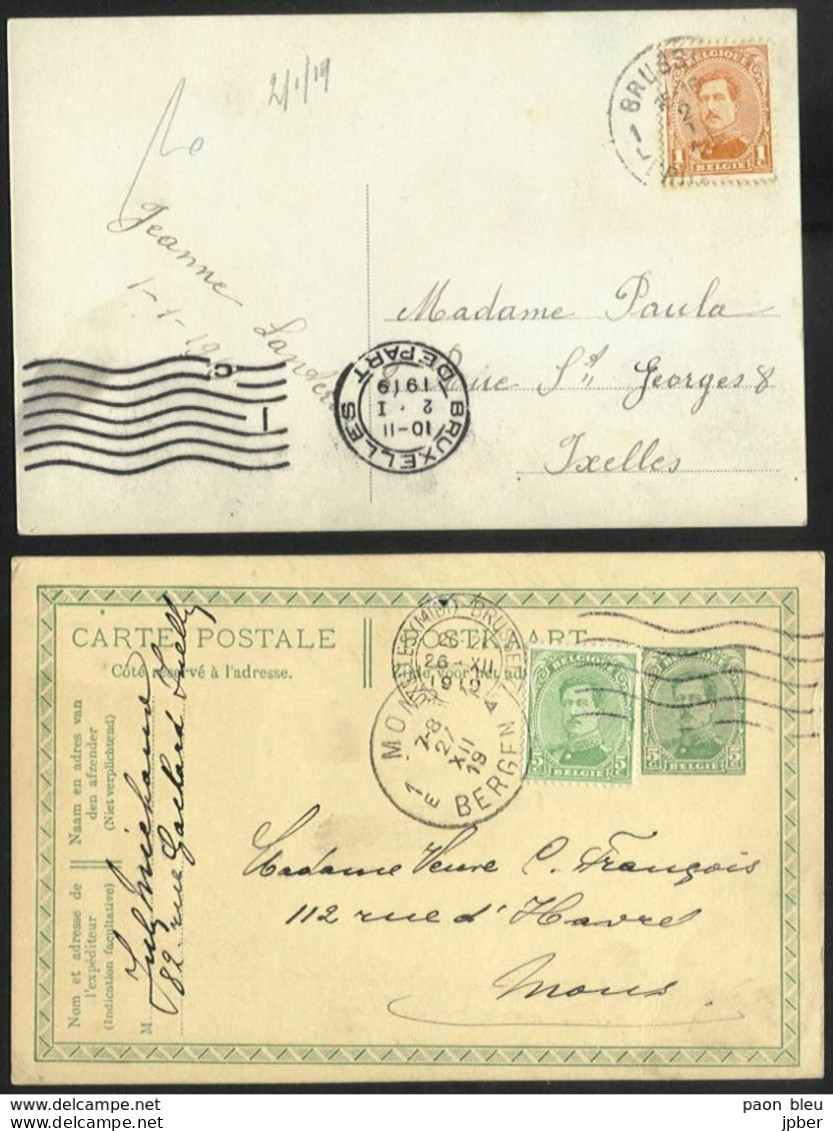 2/1/19
BELGIQUE
1 C 1 C
BELGIE
BRUSS
1
Jeanne
1-1-19
Madame Paula
Rue St Georges 8
Ixelles
BRUXELLES
10-11
2 . I
1919
DEPART
CARTE POSTALE
POSTKAART
Côté réservé à l'adresse.
voor het
26-XII
1919
BRUSSEL
MON
7-8
27
XII
19
1 E BERGEN
BELGIQUE
5 C 5 C
BELGIE
BELGIQUE
5 C 5 C
BELGIE
Naam en adres van
den afzender
(Niet verplichtend)
Nom et adresse de
l'expéditeur
(Indication facultative)
M
82 rue
Madame Veuve C. François
112 rue d'Havré
Mons
paon bleu
jpber